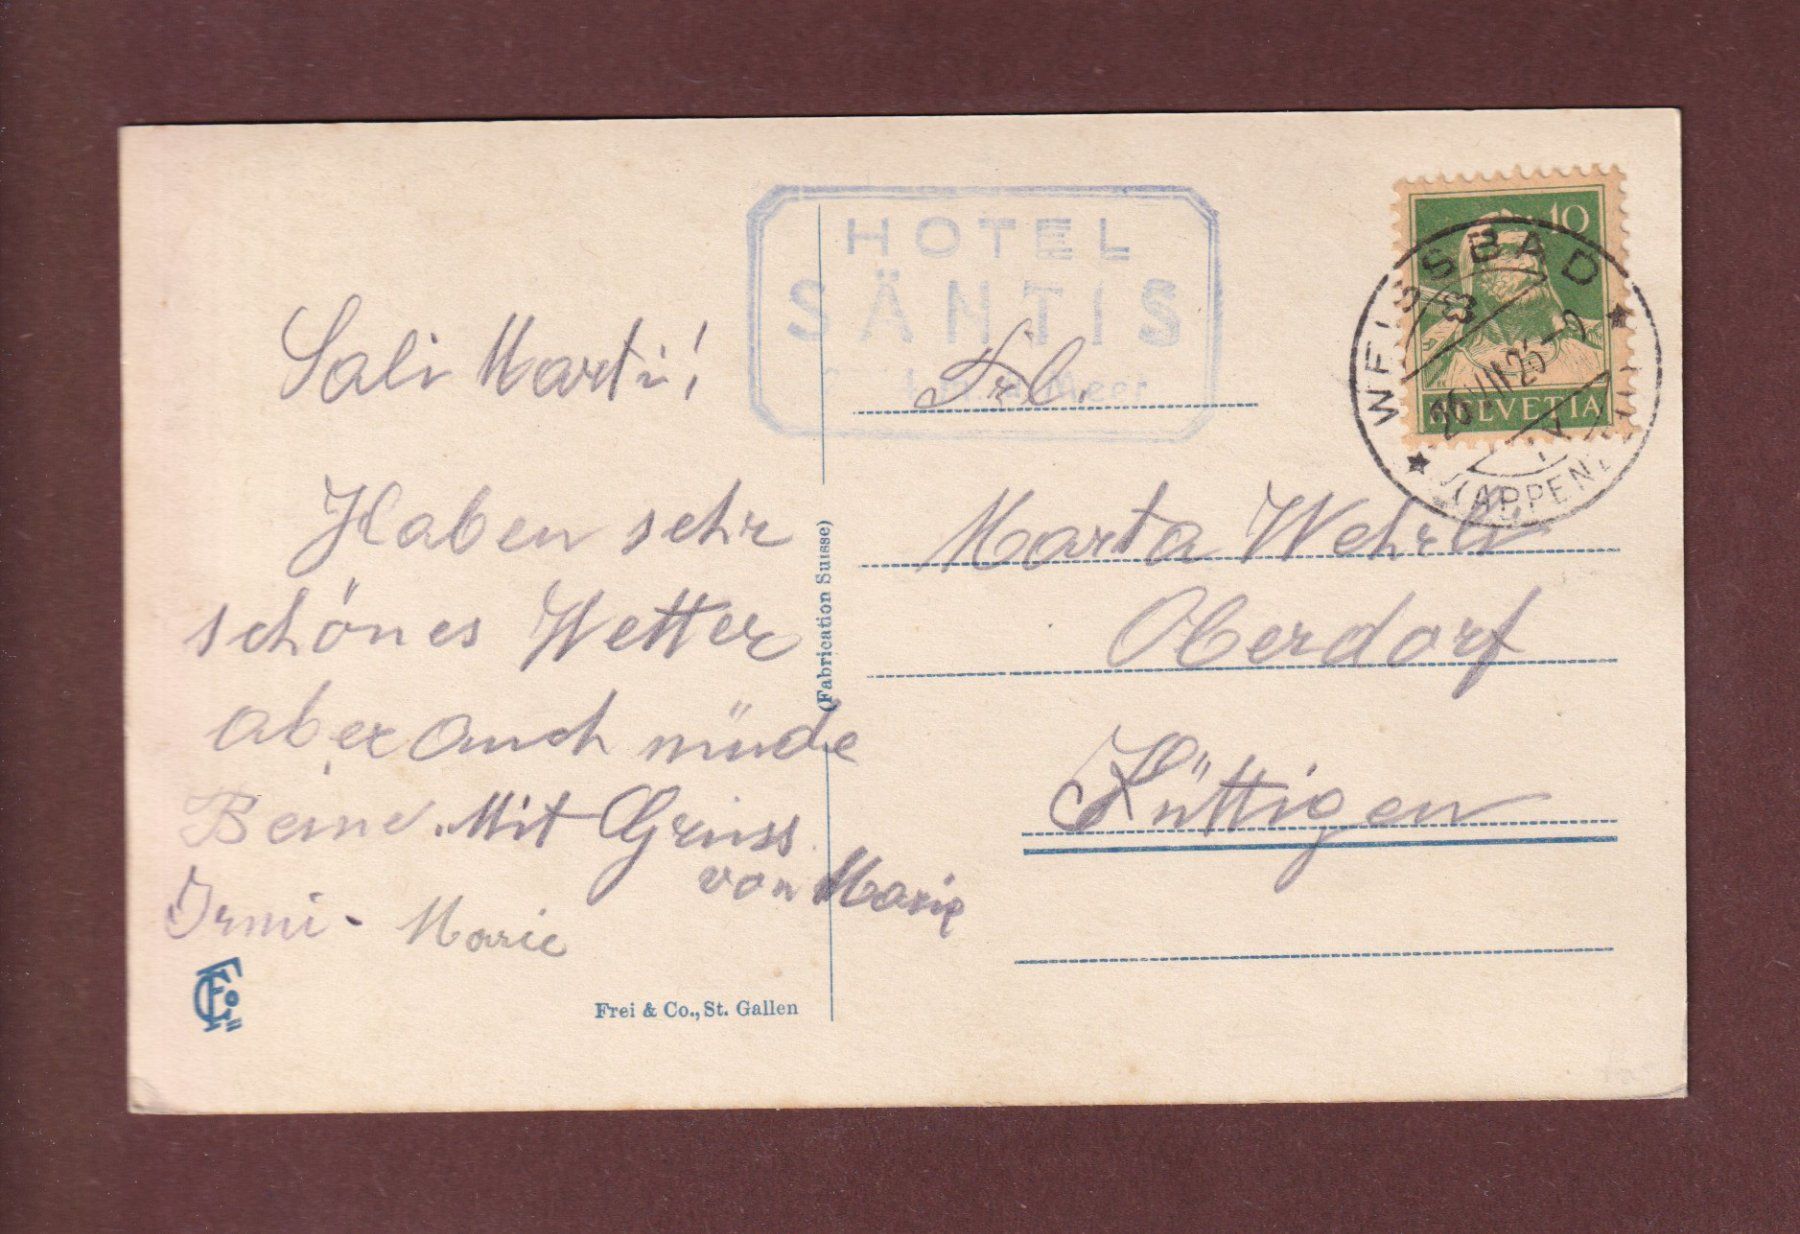 HOTEL
SÄNTIS
m. ü. Meer
10
HELVETIA
WEISSBAD
(APPENZELL)
Sali Marti!
Haben sehr
schönes Wetter
aber auch müde
Beine. Mit Gruss
von Marie
Irmi - Marie
Frl.
Marta Wehrli
Oberdorf
Küttigen
(Fabrication Suisse)
Frei & Co., St. Gallen